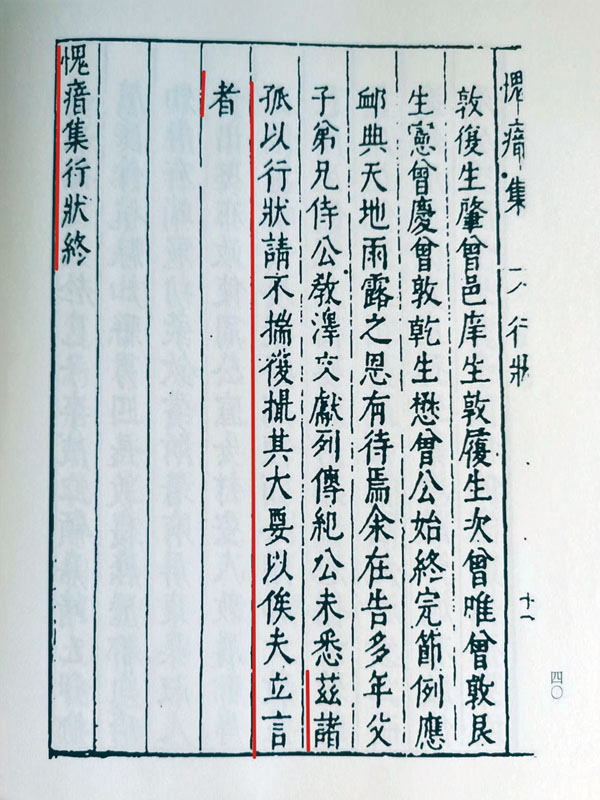 愧瘖集 行狀 十一
敦復生肇曾邑庠生敦履生次曾唯曾敦艮
生憲曾慶曾敦乾生懋曾公始終完節例應
卹典天地雨露之恩有待焉余在告多年父
子弟兄侍公教澤文獻列傳紀公未悉茲諸
孤以行狀請不揣復撮其大要以俟夫立言
者
愧瘖集行狀終
四〇